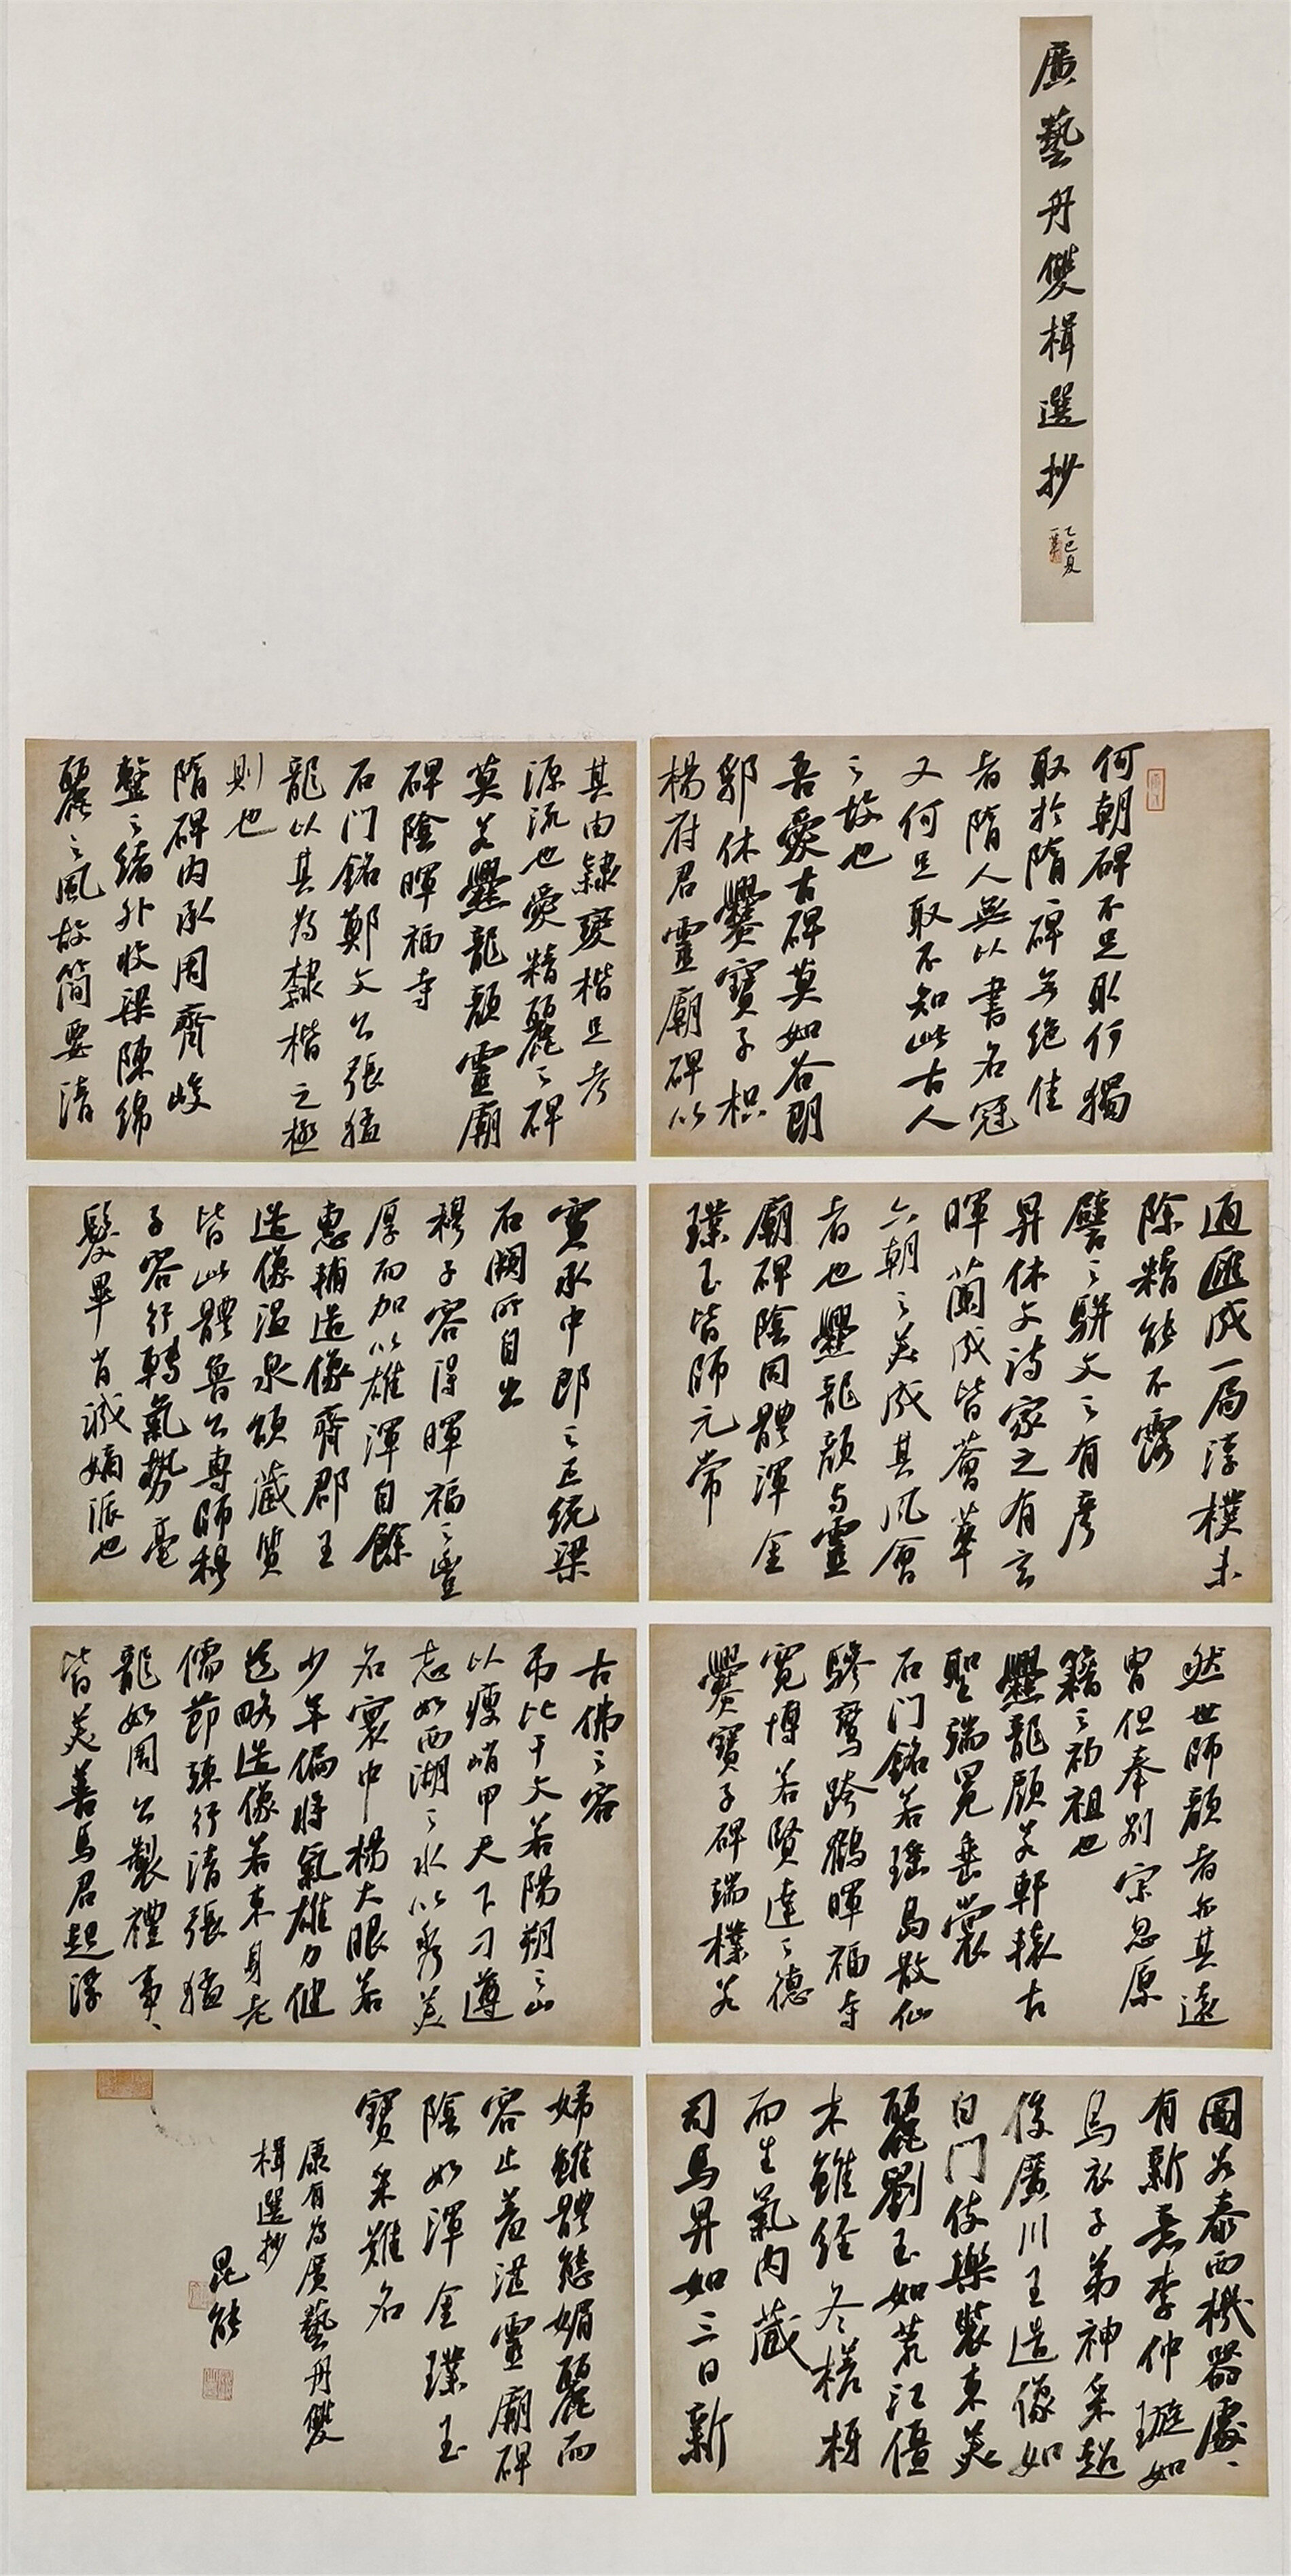 廣藝舟雙楫選抄
乙巳夏
何朝碑不足取何獨
取於隋碑無絕佳
者隋人無以書名冠
又何足取不知此古人
之故也
吾愛古碑莫如谷朗
郭休爨寶子枳
楊府君靈廟碑以
其由隸變楷足考
源流也愛精麗之碑
莫若爨龍顏靈廟
碑陰暉福寺
石门銘鄭文公張猛
龍以其為隸楷之極
則也
隋碑内承周齊峻
整之緒外收梁陳綿
麗之風故簡要清
通匯成一局淳樸未
除精能不露
譬之駢文之有彥
昇休文詩家之有玄
暉蘭成皆薈萃
六朝之美成其風會
者也爨龍顏与靈
廟碑陰同體渾金
璞玉皆師元常
實承中郎之正統梁
石闕所自出
穆子容得暉福之豐
厚而加以雄渾自餘
惠輔造像齊郡王
造像温泉頌藏質
皆此體魯公專師穆
子容行轉氣勢毫
髮畢肖誠嫡派也
然世師顏者亦其遠
胄但奉别宗忽原
籍之初祖也
爨龍顏若軒轅古
聖端冕垂裳
石门銘若瑶島散仙
驂鸞跨鶴暉福寺
寬博若賢達之德
爨寶子碑端樸若
古佛之容
吊比干文若陽朔之山
以瘦峭甲天下刁遵
志如西湖之水以秀美
名寰中楊大眼若
少年偏將氣雄力健
道略造像若束身老
儒節疎行清張猛
龍如周公製禮事、
皆美善馬君起浮
圖若泰西機器處、
有新意李仲璇如
烏衣子弟神采超
俊廣川王造像如
白门伎樂裝束美
麗劉玉如荒江僵
木雖經冬槎枒
而生氣内藏
司馬昇如三日新
婦雖體態媚麗而
容止羞澁靈廟碑
陰如渾金璞玉
寶采難名
康有為廣藝舟雙
楫選抄
昆能